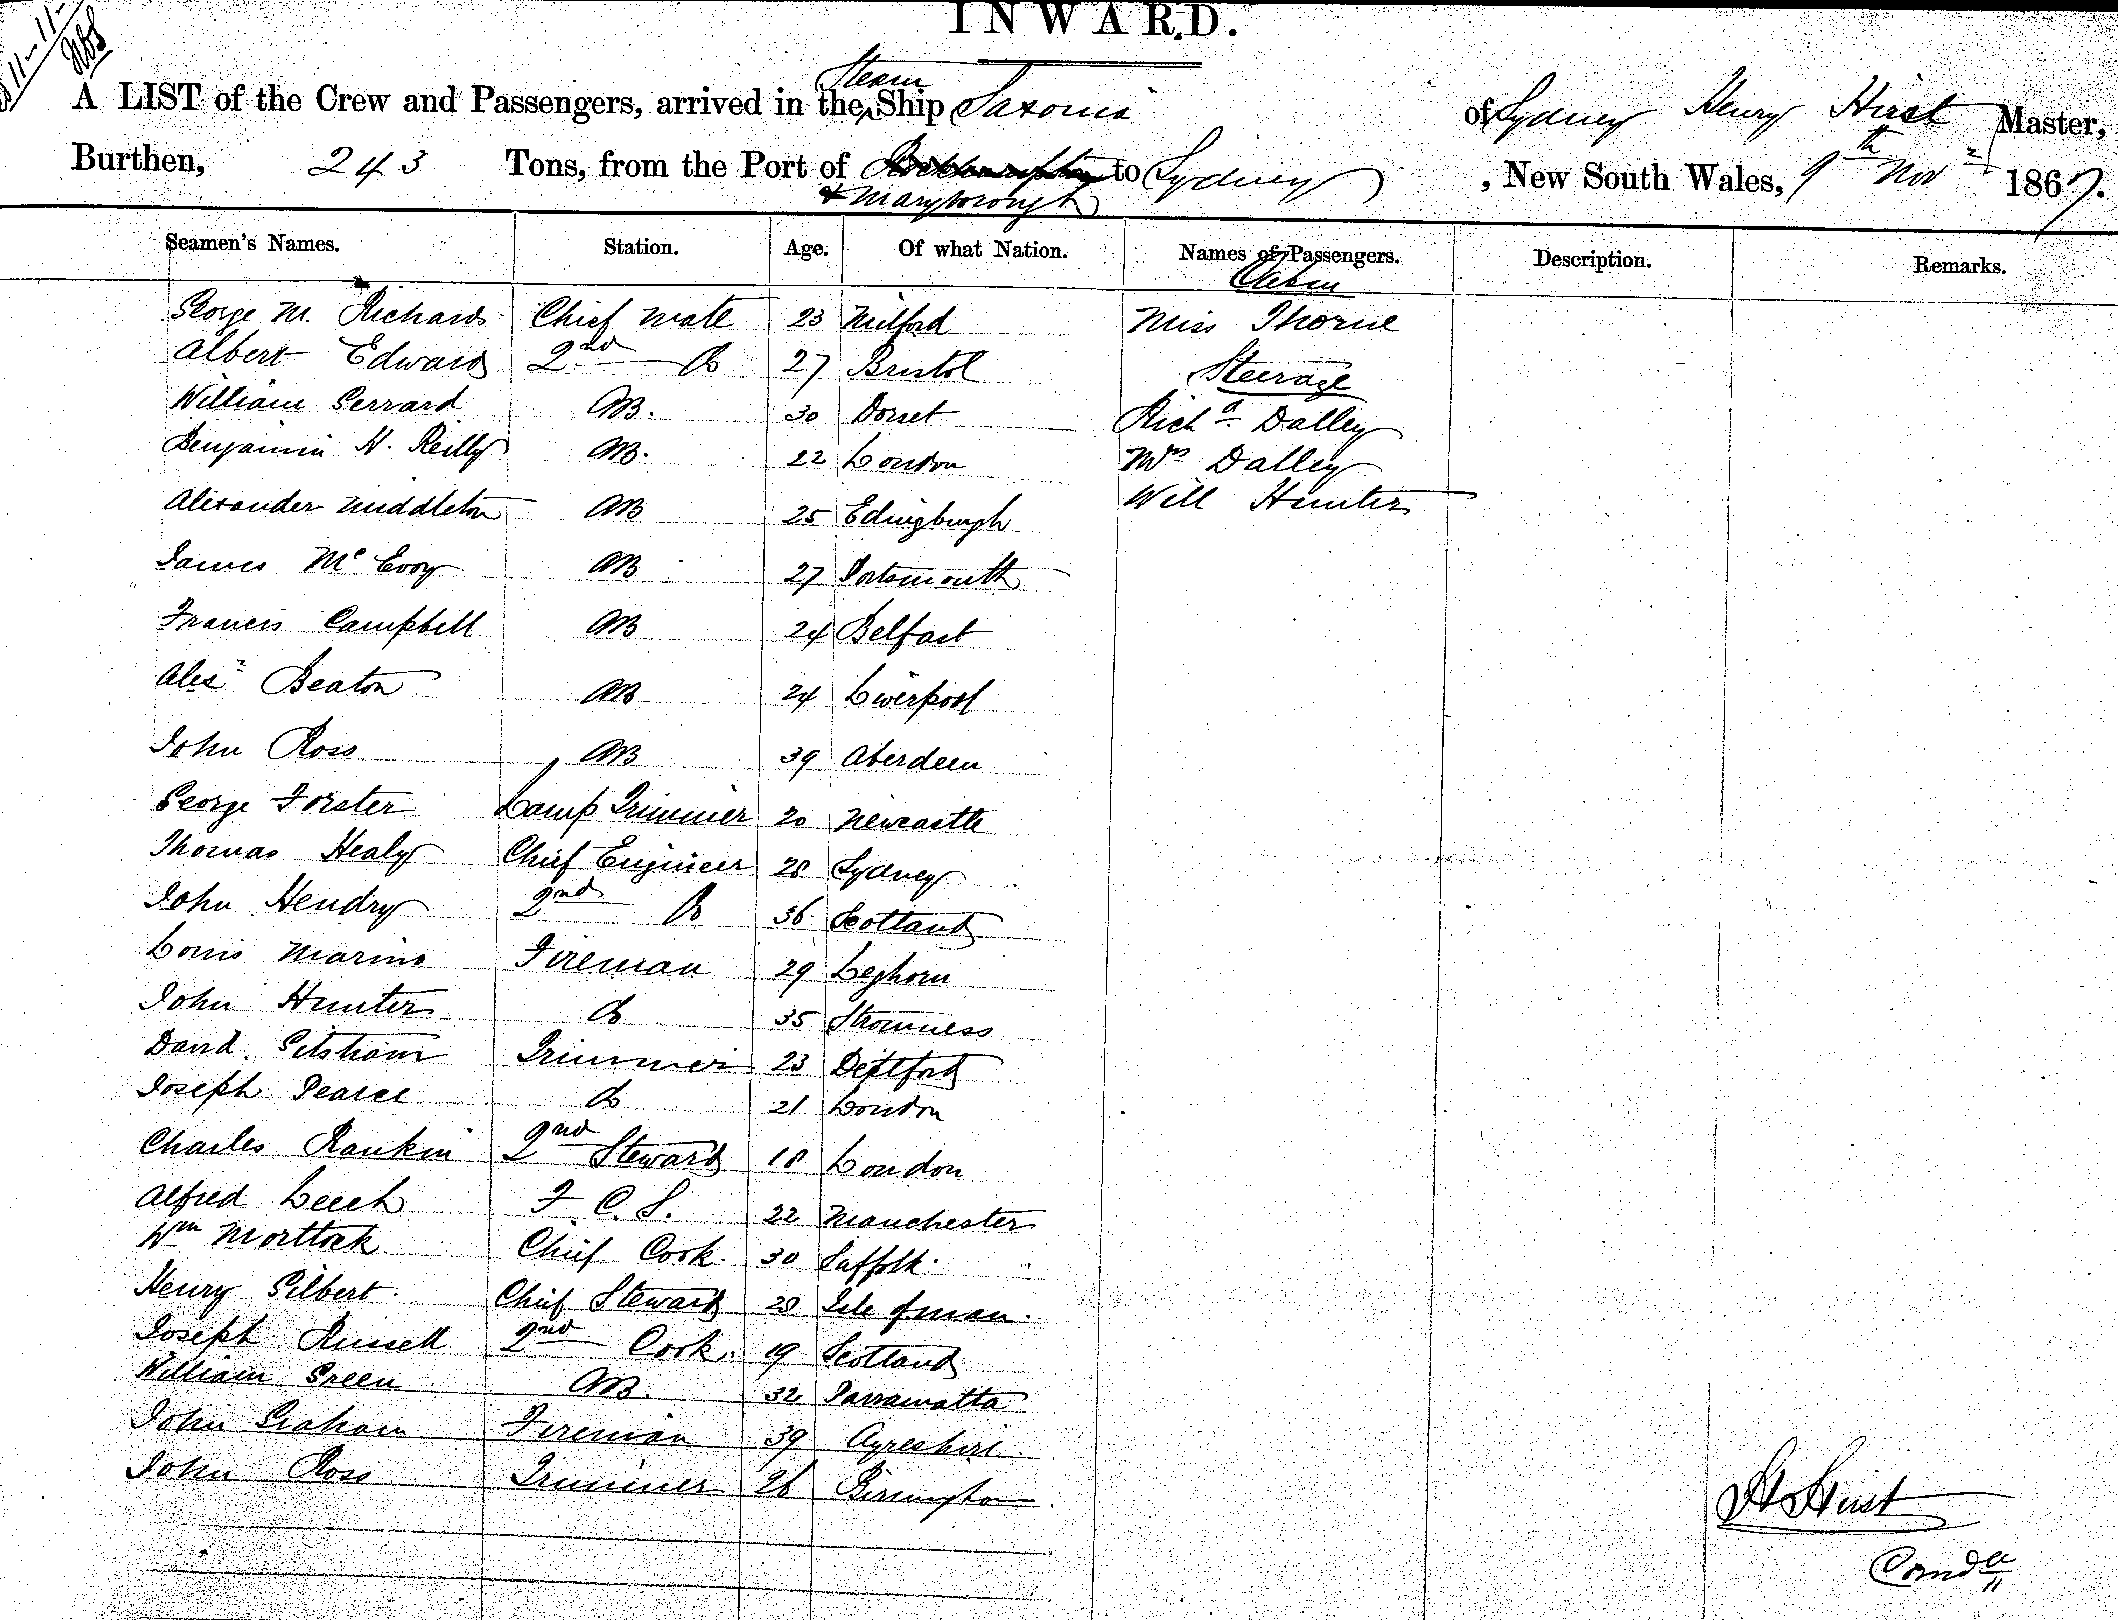 INWARD.
A LIST of the Crew and Passengers, arrived in the Steam Ship Saxonia of Sydney Henry Hirst Master,
Burthen, 243 Tons, from the Port of Maryborough to Sydney, New South Wales, 9th Novr 1867.
Seamen's Names. Station. Age. Of what Nation. Names of Passengers. Description. Remarks.
Cabin
George M. Richards Chief Mate 23 Milford Miss Thorne
Albert Edwards 2nd Do 27 Bristol Steerage
William Gerrard AB. 30 Dorset Richd Dalley
Benjamin H. Reilly AB. 22 London Mrs Dalley
Alexander Middleton AB 25 Edingburgh Will Hunter
James McEvoy AB 27 Portsmouth
Francis Campbell AB 24 Belfast
Alexr Beaton AB 24 Liverpool
John Ross AB 39 Aberdeen
George Forster Lamp Trimmer 20 Newcastle
Thomas Healy Chief Engineer 28 Sydney
John Hendry 2nd Do 36 Scotland
Louis Marino Fireman 29 Leghorn
John Hunter Do 35 Stromness
David Gilsham Trimmer 23 Deptford
Joseph Pearce Do 21 London
Charles Rankin 2nd Steward 18 London
Alfred Leech F. C. S. 22 Manchester
Wm Morttock Chief Cook 30 Suffolk.
Henry Gilbert. Chief Steward 28 Isle of man.
Joseph Russell 2nd Cook. 19 Scotland
William Green AB. 32 Parramatta
John Graham Fireman 39 Ayreshire.
John Ross Trimmer 26 Birmingham
H Hirst
Comdr